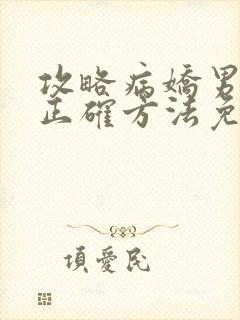 攻略病嬌男
正確方法免
項愛民